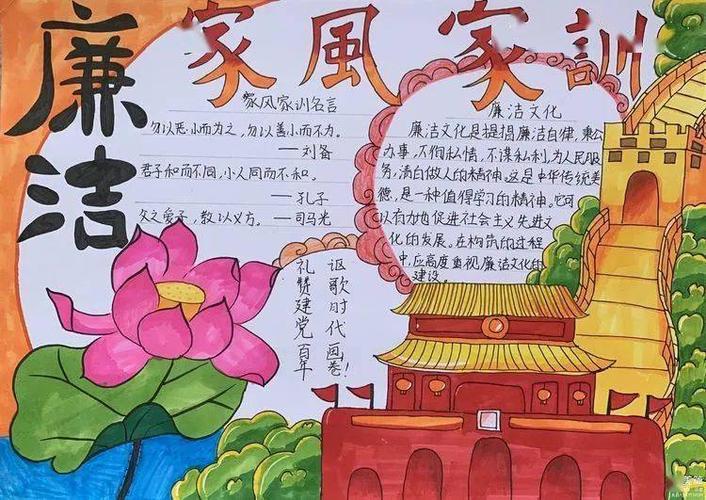 廉洁
家風家訓
家风家训名言
勿以恶小而为之，勿以善小而不为。
——刘备
君子和而不同，小人同而不和。
——孔子
之爱子，教以义方。——司马光
廉洁文化
廉洁文化是提倡廉洁自律，秉公
办事，不徇私情，不谋私利，为人民服
务，清白做人的精神。这是中华传统美
德，是一种值得学习的精神。它可
以有力地促进社会主义先进文
化的发展。在构筑的过程
中，应高度重视廉洁文化的
建设。
讴歌时代画卷！
礼赞建党百年